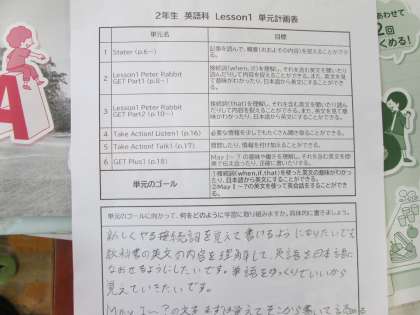 2年生 英語科 Lesson1 単元計画表
単元名 目標
1 Stater (p.6~) 記事を読んで、概要(おおよその内容)を捉えることができる。
2 Lesson1 Peter Rabbit
GET Part1 (p.8~)
接続詞(when, if)を理解し、それを含む英文を聞いたり読んだりして内容を捉えることができる。また、英文を見て意味がわかったり、日本語から英文にすることができる。
3 Lesson1 Peter Rabbit
GET Part2 (p.10~)
接続詞(that)を理解し、それを含む英文を聞いたり読んだりして内容を捉えることができる。また、英文を見て意味がわかったり、日本語から英文にすることができる。
4 Take Action! Listen1 (p.16) 必要な情報を少しでもたくさん聞き取ることができる。
5 Take Action! Talk1 (p.17) 質問したり、情報を付け加えることができる。
6 GET Plus1 (p.18) May I~?の意味や働きを理解し、それを含む英文を即座で伝え合ったり、正確に書いたりする。
単元のゴール
①接続詞(when,if,that)を使った英文の意味がわかったり、日本語から英文にすることができる。
②May I~?の英文を使って英会話をすることができる。
単元のゴールに向かって、何をどのように学習に取り組みますか。具体的に書きましょう。
新しくやる接続詞を覚えて書けるようになりたいです
教科書の英文の内容を理解して、英語を日本語に
なおせるようにしたいです。単語をゆっくりでいいから
覚えていきたいです。
May I~?の文をまずは覚えてそこから書いて
A
あわせて
2回
める!